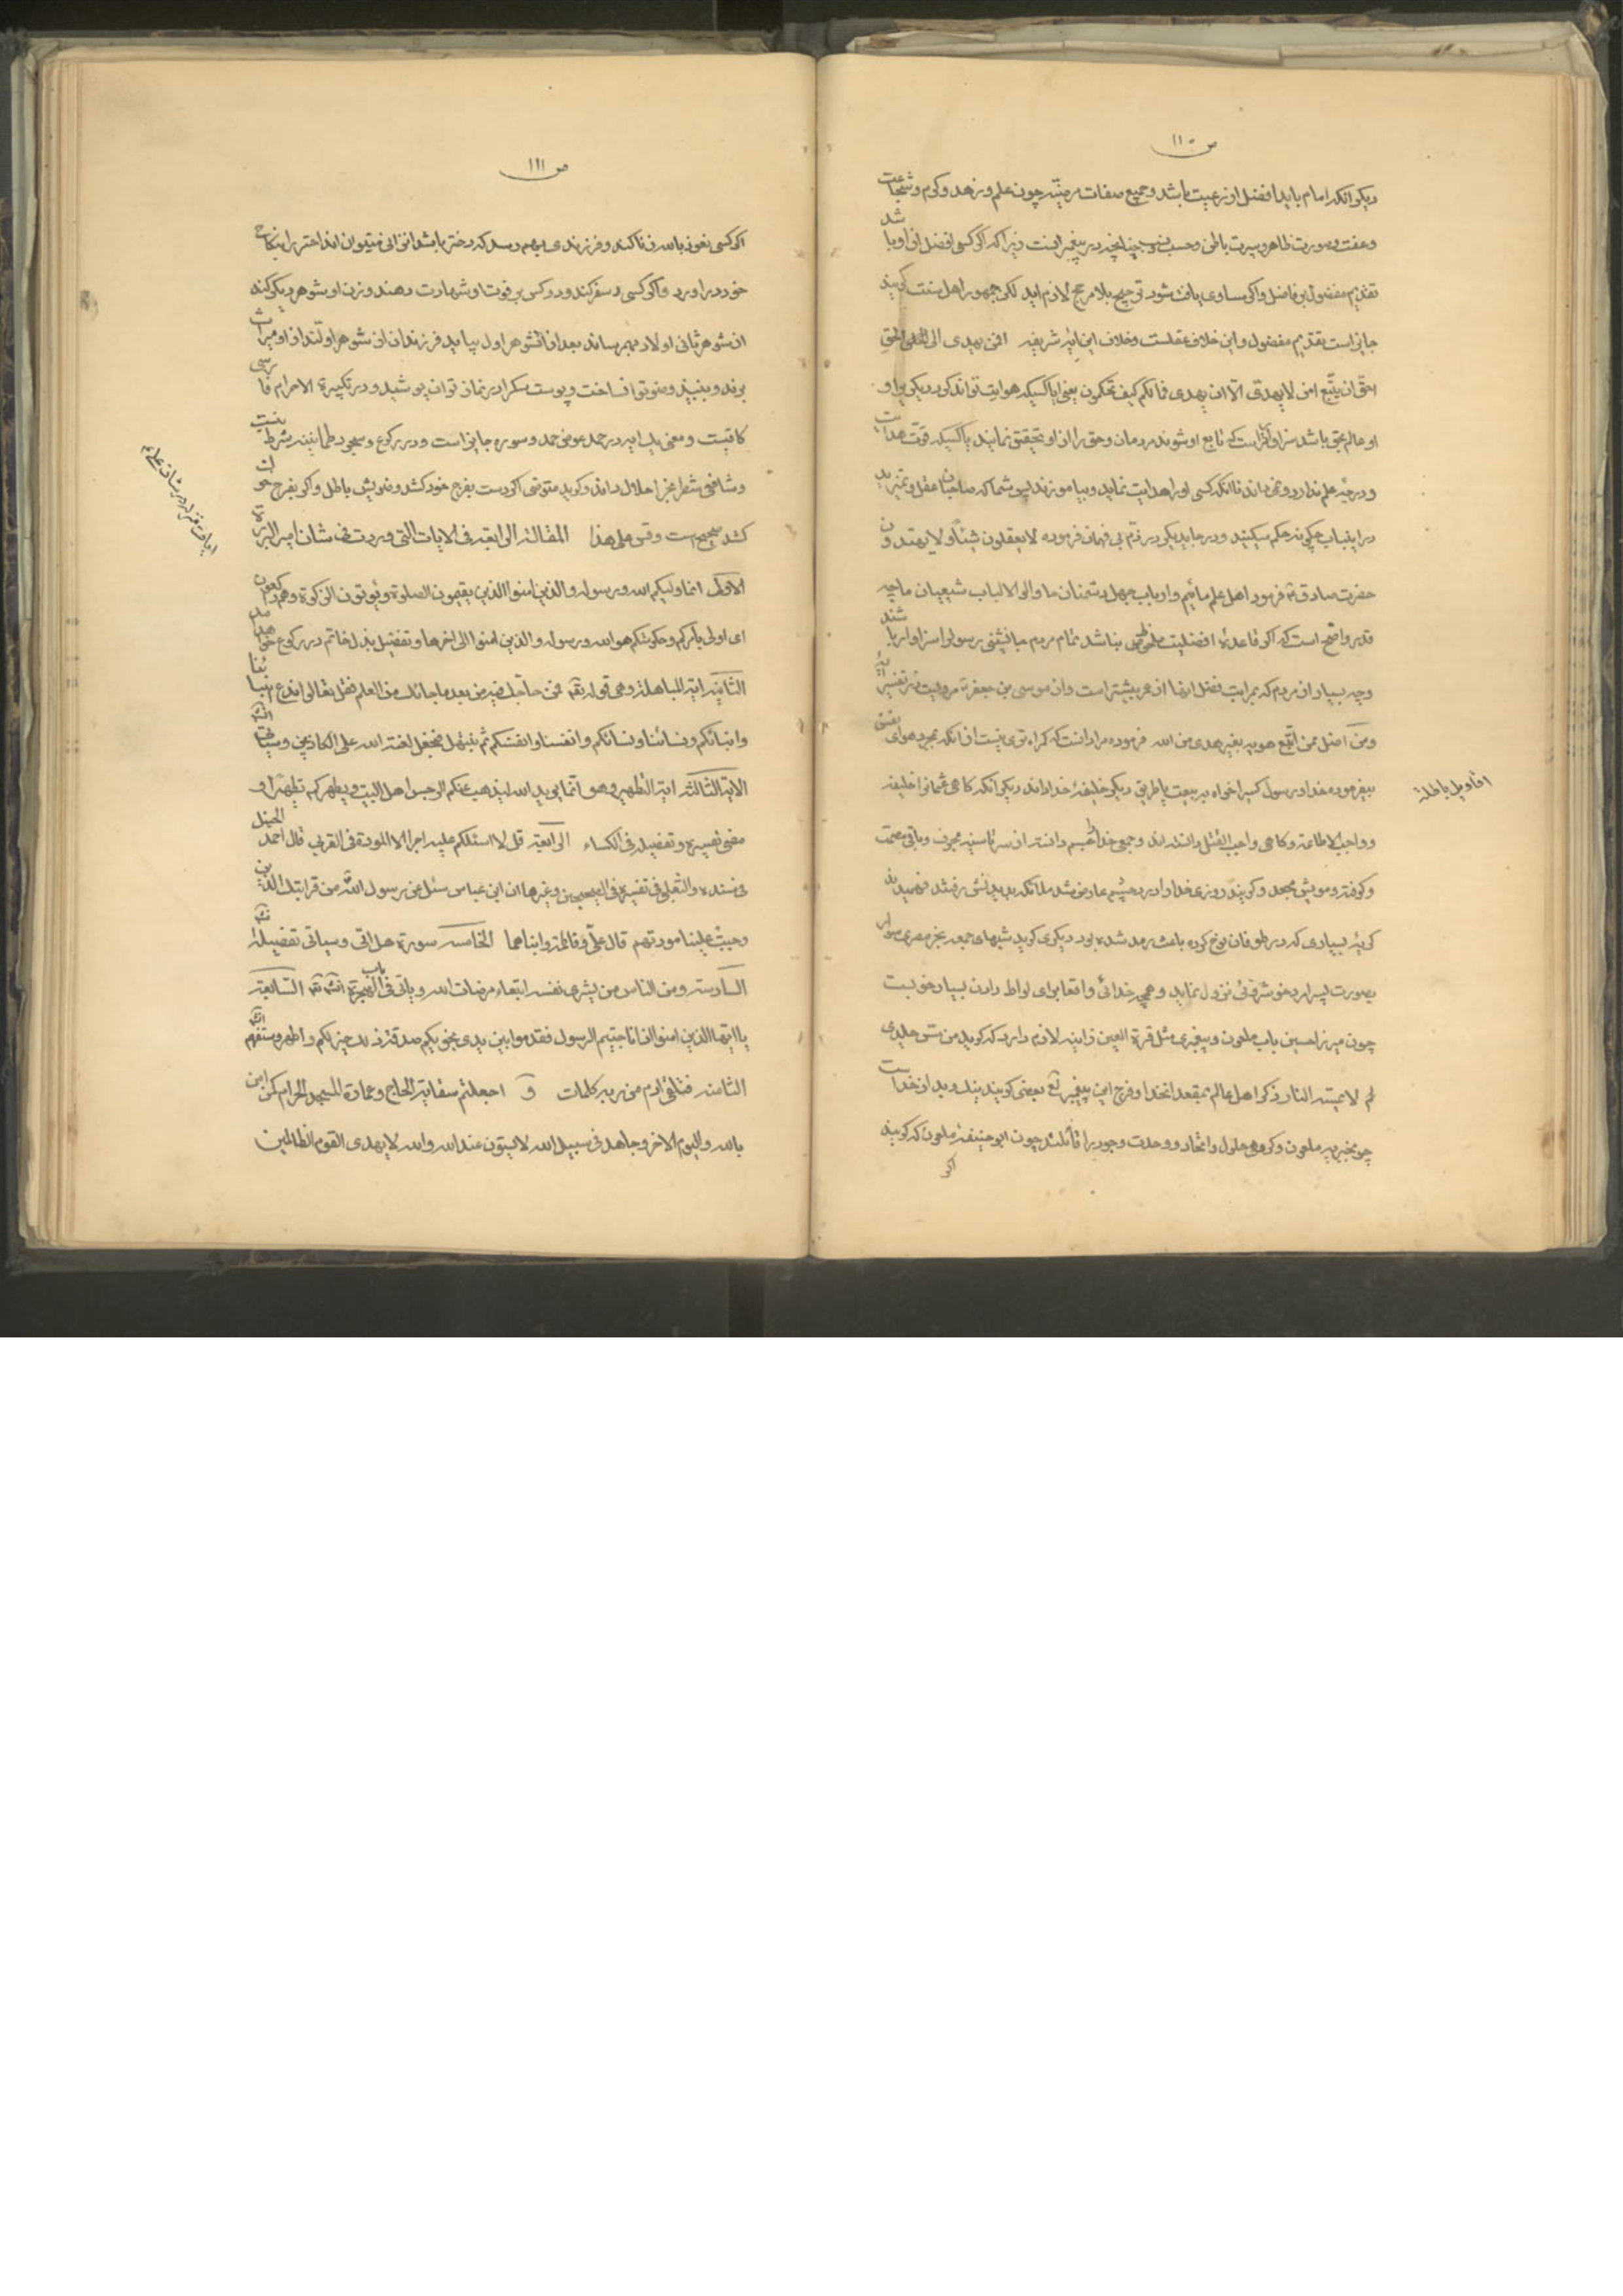 ص ۱۱۰
دیگر آنکه امام باید افضل از رعیت باشد و جمیع صفات مرضیّه چون علم و زهد و کرم و شجاعت
و عفت و صورت ظاهر و سیرت باطن و حسب و نسب چنانچه در پیغمبر است زیرا که اگر کسی افضل از او باشد
تقدیم مفضول بر فاضل و اگر مساوی یافت شود ترجیح بلا مرجح لازم اید لکن جمهور اهل سنت گویند
جایز است تقدیم مفضول و این خلاف عقلست و خلاف این ایه شریفه افمن یهدی الی الحق
احق ان یتّبع امن لا یهدّی الّا ان یهدی فما لکم کیف تحکمون یعنی ایا کسیکه هدایت تواند کرد دیگریرا و
او عالم بحق باشد سزاوارتر است که تابع او شوند مردمان و حق را از او تحقیق نمایند یا کسیکه قوّت هدایت
و درجهٔ علم ندارد و نمیداند تا انکه کسی او را هدایت نماید و بیاموزند پس شما که صاحبان عقل و تمیزید
در اینباب چگونه حکم میکنید و در جای دیگر در ذم بی فهمان فرموده لا یعقلون شیئاً و لا یهتدون
حضرت صادق ع فرمود اهل علم مائیم و ارباب جهل دشمنان ما و اولی الالباب شیعیان ما چه
قدر واضح است که اگر قاعدهٔ افضلیت نباشد تمام مردم جانشینی رسول را سزاوار باشند
و چه بسیار از مردم که بمراتب فضل انها از عمر بیشتر است و از موسی بن جعفر ع مرویست در تفسیر ایهٔ
و من اضل ممن اتّبع هویه بغیر هدی من الله فرموده مراد انست که گمراه تری نیست از انکه بمجرد هوای نفس
بیفرموده خدا و رسول کسیرا خواه ببیعت یا طریق دیگر خلیفهٔ خدا داند دیگر انکه گاهی عثمانرا خلیفه
و واجب الاطاعه و گاهی واجب القتل دانسته اند و جمعی خدا را جسم دانند از سر تا سینه مجوف و باقی مصمت
و کوفته و مویش مجعد و گویند روزی خدا را درد چشم عارض شد ملائکه بدیدنش رفتند فهمیدند
گریه بسیاری که در طوفان نوح کرده باعث رمد شده بود دیگری گوید شبهای جمعه بخر مصری سوار
بصورت پسر امرد خوشروئی نزول نماید و همچه خدائی واقعا برای لواط دادن بسیار خوبست
چون میرزا حسین باب ملعون و پیغمبری مثل قرة العین زانیه لازم دارد که گوید من مسّ جلدی
لم لا تمیته النار ذکر اهل عالم بمقعد انخدا و فرج این پیغمبر تَع بعضی گویند نیک و بد از خداست
چو مجبره ملعون و گروهی حلول و اتحاد و وحدت وجود را قائلند چون ابوحنیفه ملعون که گوید
اگر
اقاویل باطله
ص ۱۱۱
اگر کسی نعوذ بالله زنا کند و فرزندی بهم رسد که دختر باشد انزانی میتوان اندختر را بنکاح
خود در اورد و اگر کسی سفر کند و دو کس بر فوت او شهادت دهند و زن او شوهر دیگر کند
از شوهر ثانی اولاد بهم رساند بعد از آن شوهر اول بیاید فرزندان از شوهر اولند از او میراث
برند و بنبیذ وضو توان ساخت و پوست سگ را در نماز توان پوشید و در تکبیرة الاحرام فارسی
کافیست و معنی یک ایه در حمد عوض حمد و سوره جایز است و در رکوع و سجود طمانینه شرط نیست
و شافعی شطرنج را حلال داند و گوید متوضی اگر دست بفرج خود کشد وضویش باطل و اگر بفرج خوان
کشد صحیح ست وقس علی هذا المقالة الرابعة فی الایات التی وردت فی شان امیر البررة
الاولی انما ولیکم الله و رسوله و الذین امنوا الذین یقیمون الصلوة و یؤتون الزکوة و هم راکعون
ای اولی بامرکم و حکومتکم هو الله و رسوله و الذین امنوا الی اخرها و تفصیل بذل خاتم در رکوع خواهد امد
الثانیة ایة المباهلة و هی قوله تعه فمن حاجّک فیه من بعد ما جائک من العلم فقل تعالوا ندع ابنائنا
و ابنائکم و نسائنا و نسائکم و انفسنا و انفسکم ثم نبتهل فنجعل لعنة الله علی الکاذبین و سیاتی
الایة الثالثة ایة التطهیر و هو انّما یرید الله لیذهب عنکم الرجس اهل البیت و یطهرکم تطهیرا و
مضی تفسیره و تفصیله فی الکساء الرابعة قل لا اسئلکم علیه اجرا الا المودة فی القربی قال احمد الحنبل
فی مسنده و الثعلبی فی تفسیره فی الصحیحین و غیرها ان ابن عباس سئل عن رسول الله من قرابتک الذین
وجبت علینا مودتهم قال علیّ و فاطمة و ابناهما الخامسه سورة هل اتی و سیاتی تفصیله انشه
السادسة و من الناس من یشری نفسه ابتغاء مرضات الله و یاتی فی باب الهجرة انشه تعه السابعة
یا ایها الذین امنوا اذا ناجیتم الرسول فقدموا بین یدی نجویکم صدقة ذلک خیر لکم و اطهر و ستفهم انشه
الثامنه فتلقی ادم من ربه کلمات و اجعلتم سقایة الحاج و عمارة المسجد الحرام کمن امن
بالله و الیوم الاخر و جاهد فی سبیل الله لا یستون عند الله و الله لا یهدی القوم الظالمین
ایات قران در شان علی ع